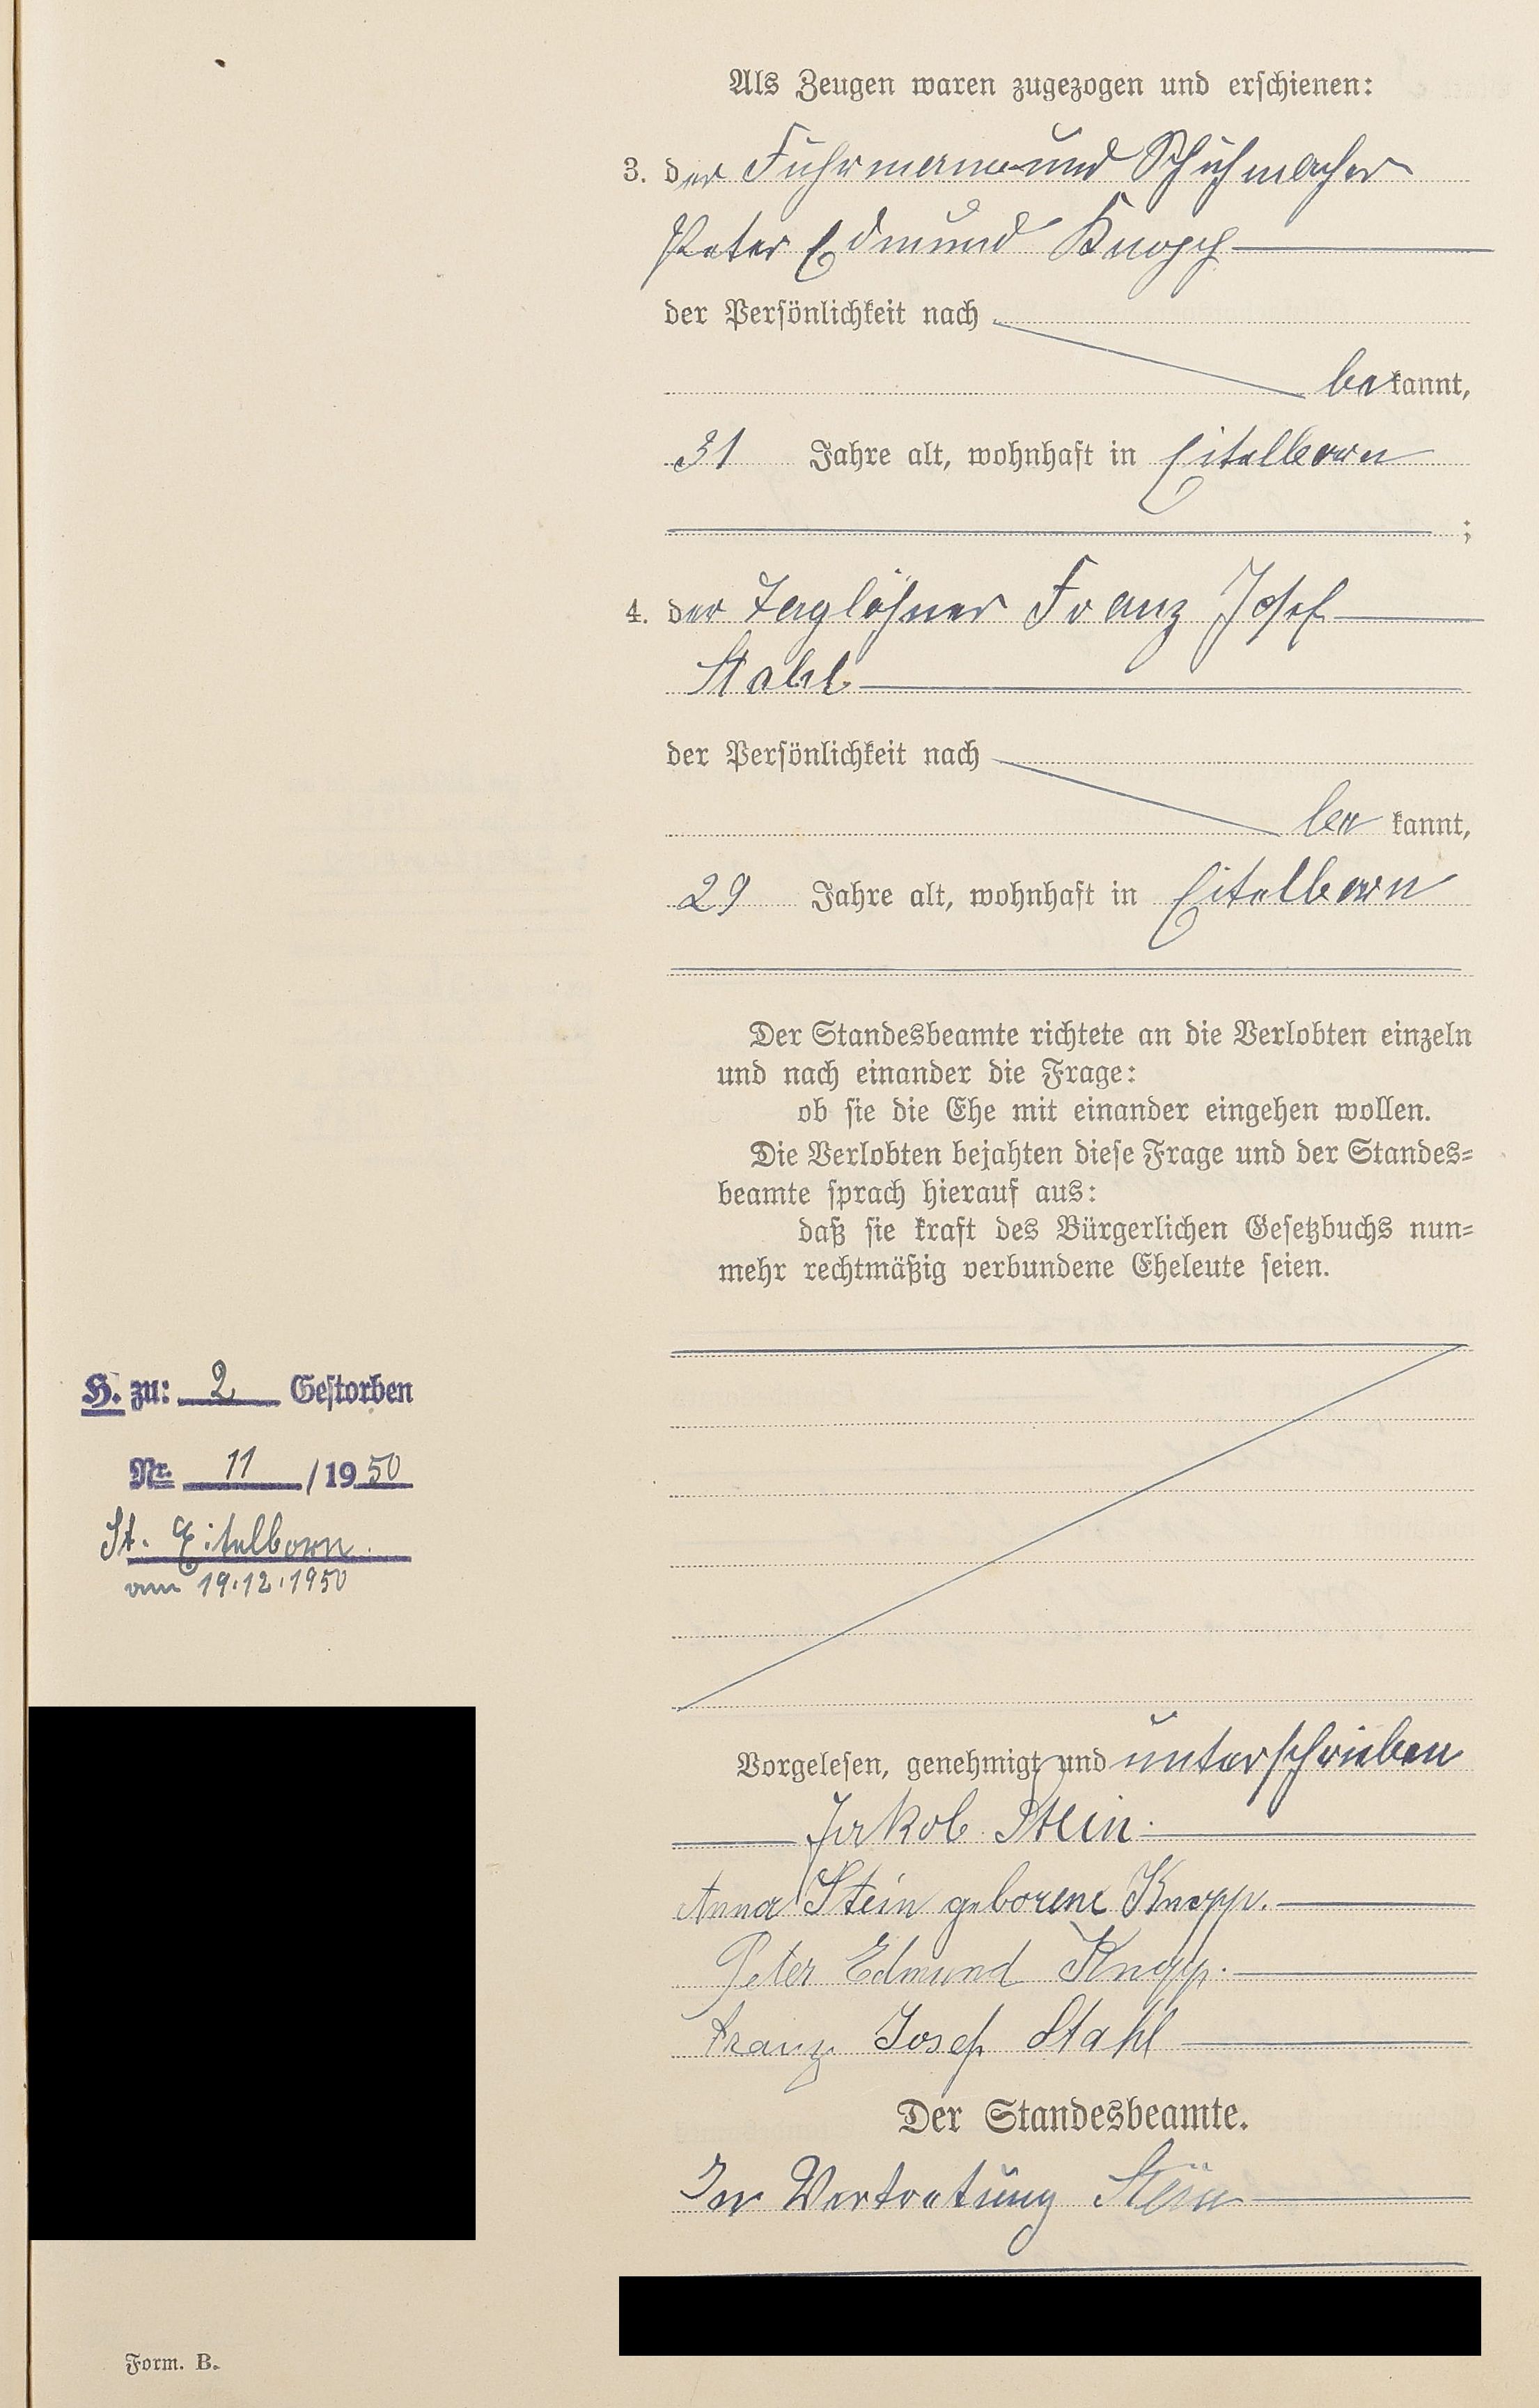 Als Zeugen waren zugezogen und erschienen:
3. der Fuhrmann und Schuhmacher
Peter Edmund Knopp
der Persönlichkeit nach
bekannt,
31 Jahre alt, wohnhaft in Eitelborn
;
4. der Taglöhner Franz Josef
Stahl
der Persönlichkeit nach
be kannt,
29 Jahre alt, wohnhaft in Eitelborn
Der Standesbeamte richtete an die Verlobten einzeln
und nach einander die Frage:
ob sie die Ehe mit einander eingehen wollen.
Die Verlobten bejahten diese Frage und der Standes=
beamte sprach hierauf aus:
daß sie kraft des Bürgerlichen Gesetzbuchs nun=
mehr rechtmäßig verbundene Eheleute seien.
H. zu: 2 Gestorben
Nr. 11 / 1950
St. Eitelborn.
am 19.12.1950
Vorgelesen, genehmigt und unterschrieben
Jakob Stein.
Anna Stein geborene Knopp.
Peter Edmund Knopp.
Franz Josef Stahl
Der Standesbeamte.
In Vertretung Stein
Form. B.